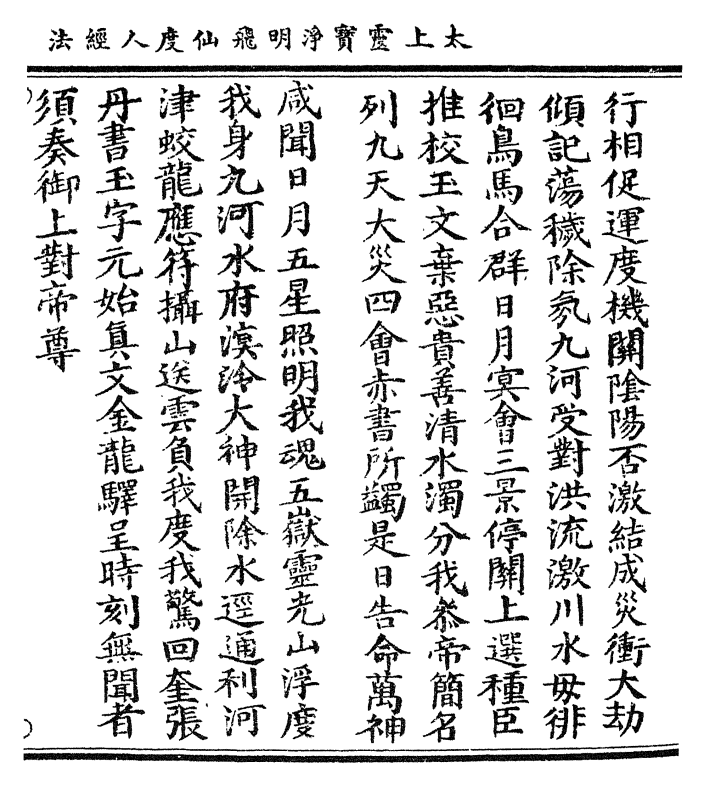 太上靈寶淨明飛仙度人經法
行相促運度機關陰陽否激結成災衝大劫
傾記蕩穢除氛九河受對洪流激川水毋徘
徊鳥馬合群日月冥會三景停關上選種臣
推校玉文棄惡貴善清水濁分我忝帝簡名
列九天大災四會赤書所蠲是日告命萬神
咸聞日月五星照明我魂五嶽靈光山浮度
我身九河水府溟泠大神開除水逕通利河
津蛟龍應符攝山送雲負我度我驚回奎張
丹書玉字元始真文金龍驛呈時刻無聞者
須奏御上對帝尊